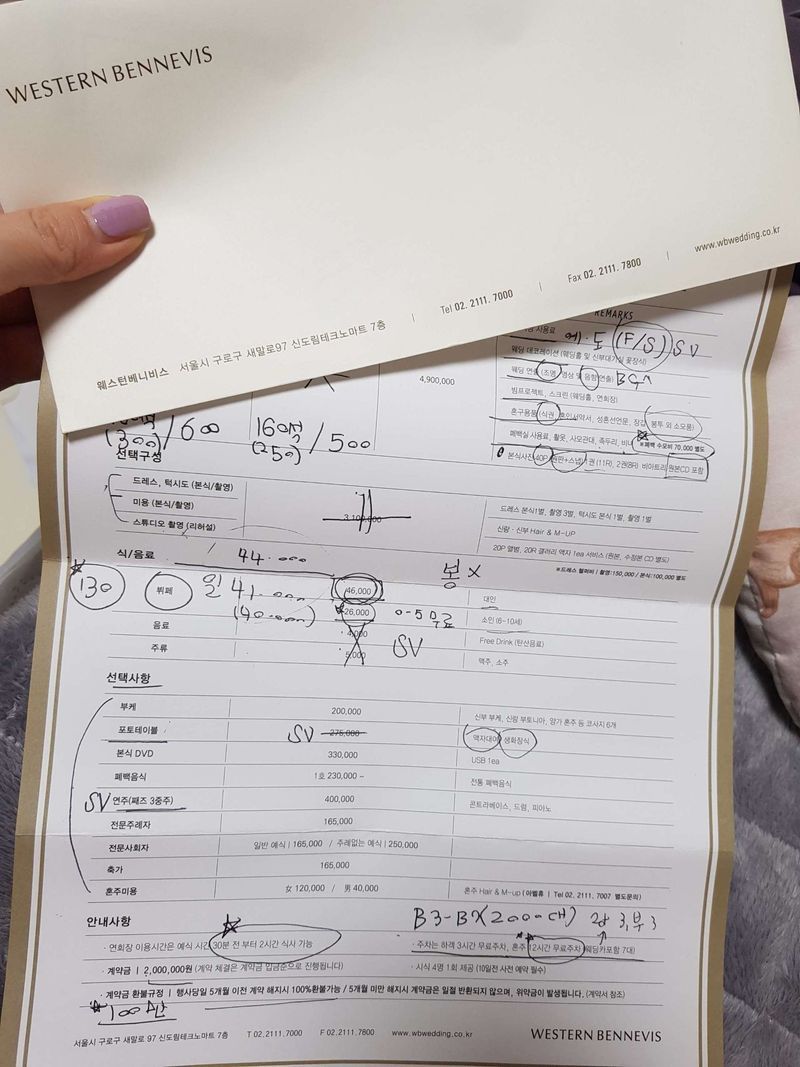 WESTERN BENNEVIS
웨스턴베니비스 서울시 구로구 새말로97 신도림테크노마트 7층 | Tel 02. 2111. 7000 | Fax 02. 2111. 7800 | www.wbwedding.co.kr
REMARKS
사용료 (F/S) SV
웨딩 데코레이션 (웨딩홀 및 신부대기실 꽃장식)
4,900,000 웨딩 연출 (조명, 영상 및 음향연출)
빔프로젝트, 스크린 (웨딩홀, 연회장)
혼구용품 (식권, 혼인서약서, 성혼선언문, 장갑, 봉투 외 소모품)
(300) / 600 160석 (250) / 500
폐백실 사용료, 활옷, 사모관대, 족두리, 비녀 *폐백 수모비 70,000 별도
본식사진 (40P 원판+스냅) 1권 (11R), 2권(8R) 비아트리 원본CD 포함
선택구성
드레스, 턱시도 (본식/촬영) 드레스 본식1벌, 촬영 3벌, 턱시도 본식 1벌, 촬영 1벌
미용 (본식/촬영) 신랑 · 신부 Hair & M-UP
스튜디오 촬영 (리허설) 20P 앨범, 20R 갤러리 액자 1ea 서비스 (원본, 수정본 CD 별도)
*드레스 헬퍼비 | 촬영:150,000 / 본식:100,000 별도
식/음료 44.000 봉 X
130 뷔페 일 41.000 46,000 대인
(40.000) 26,000 0-5 무료 소인 (6-10세)
음료 4,000 SV Free Drink (탄산음료)
주류 5,000 맥주, 소주
선택사항
부케 200,000 신부 부케, 신랑 부토니아, 양가 혼주 등 코사지 6개
포토테이블 SV 275,000 액자대여, 생화장식
본식 DVD 330,000 USB 1ea
폐백음식 1호 230,000 ~ 전통 폐백음식
SV 연주(째즈 3중주) 400,000 콘트라베이스, 드럼, 피아노
전문주례자 165,000
전문사회자 일반 예식 | 165,000 / 주례없는 예식 | 250,000
축가 165,000
혼주미용 女 120,000 / 男 40,000 혼주 Hair & M-up ( 아벨휴 | Tel 02. 2111. 7007 별도문의)
안내사항 (2000대)
· 연회장 이용시간은 예식 시간 30분 전 부터 2시간 식사 가능 · 주차는 하객 3시간 무료주차, 혼주 12시간 무료주차 (웨딩카포함 7대)
· 계약금 | 2,000,000원 (계약 체결은 계약금 입금순으로 진행됩니다) · 시식 4명 1회 제공 (10일전 사전 예약 필수)
· 계약금 환불규정 | 행사당일 5개월 이전 계약 해지시 100%환불가능 / 5개월 미만 해지시 계약금은 일절 반환되지 않으며, 위약금이 발생됩니다. (계약서 참조)
100만
서울시 구로구 새말로 97 신도림테크노마트 7층 T 02.2111.7000 F 02.2111.7800 www.wbwedding.co.kr WESTERN BENNEVIS